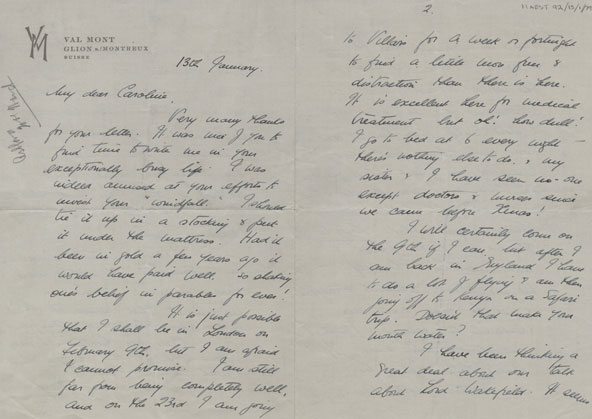 VAL MONT
GLION S/MONTREUX
SUISSE
13th January.
My dear Caroline,
Very many thanks
for your letter. It was nice of you to
find time to write me in your
exceptionally busy life. I was
indeed amused at your efforts to
invest your "windfall." I should
tie it up in a stocking & put
it under the mattress. Had it
been in gold a few years ago it
would have paid well. So shaking
one's belief in parables for ever!
It is just possible
that I shall be in London on
February 9th, but I am afraid
I cannot promise. I am still
far from being completely well,
and on the 23rd I am going
2.
to Villars for a week or fortnight
to find a little more fun &
distraction than there is here.
It is excellent here for medical
treatment but oh! how dull!
I go to bed at 6 every night –
there's nothing else to do, & my
sister & I have seen no-one
except doctors & nurses since
we came before Xmas!
I will certainly come on
the 9th if I can, but after I
am back in England I have
to do a lot of flying & am then
going off to Kenya on a Safari
trip. Doesn't that make your
mouth water?
I have been thinking a
great deal about our talk
about Lord Wakefield. It seems